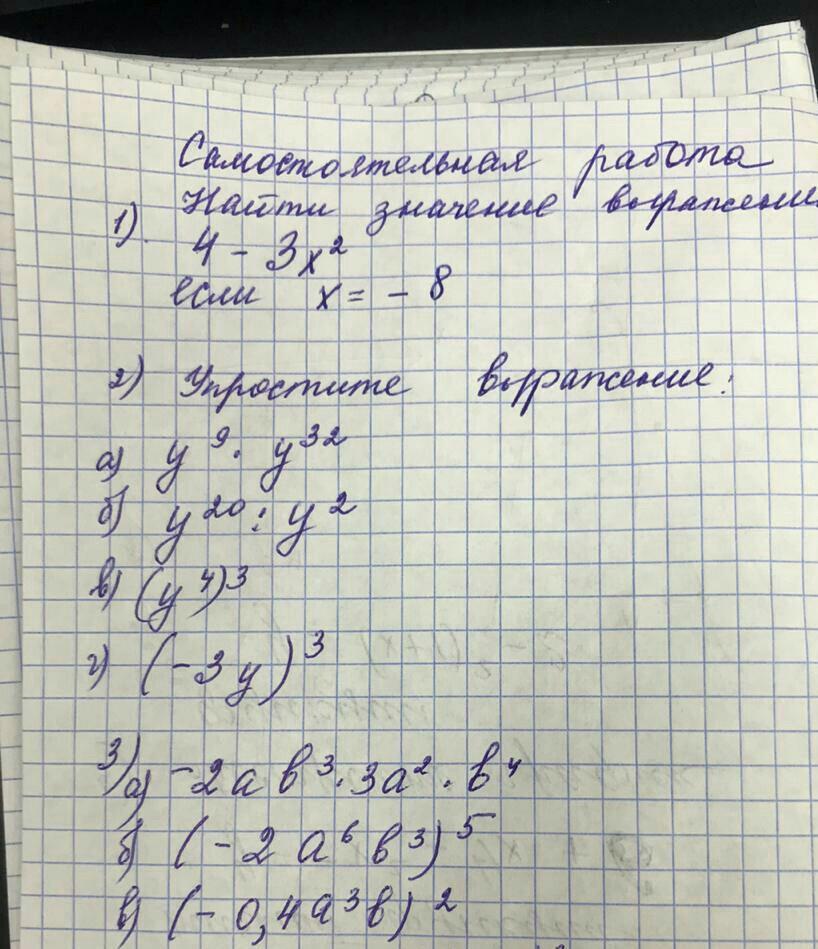 Самостоятельная работа
1). Найти значение выражени
4 - 3x²
если x = - 8
2) Упростите выражение:
а) y⁹ · y³²
б) y²⁰ : y²
в) (y⁴)³
г) (-3y)³
3) а) -2ab³ · 3a² · b⁴
б) (-2a⁶b³)⁵
в) (-0,4a³b)²